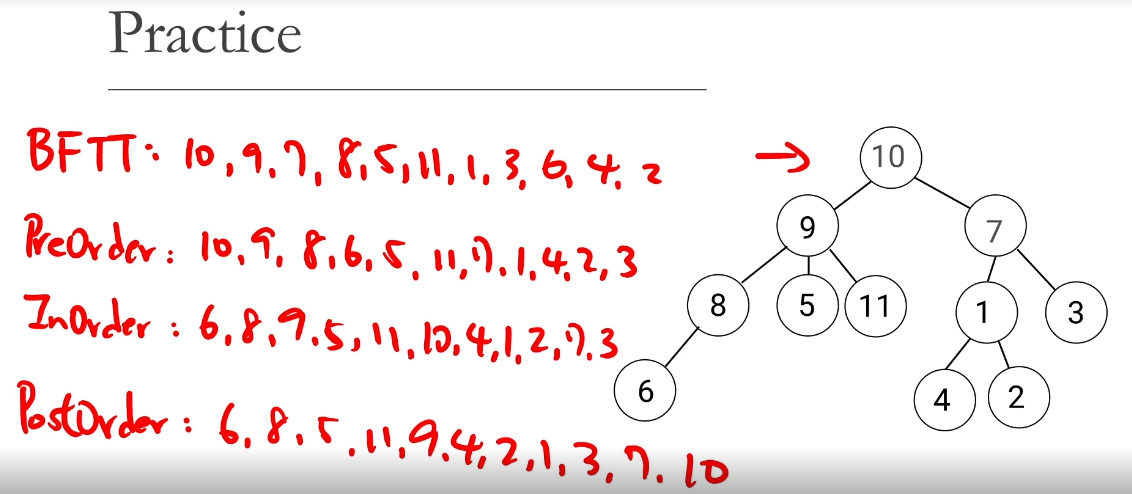 Practice
BFTT: 10, 9, 7, 8, 5, 11, 1, 3, 6, 4, 2
PreOrder: 10, 9, 8, 6, 5, 11, 7, 1, 4, 2, 3
InOrder: 6, 8, 9, 5, 11, 10, 4, 1, 2, 7, 3
PostOrder: 6, 8, 5, 11, 9, 4, 2, 1, 3, 7, 10
→ 10
9 7
8 5 11 1 3
6 4 2